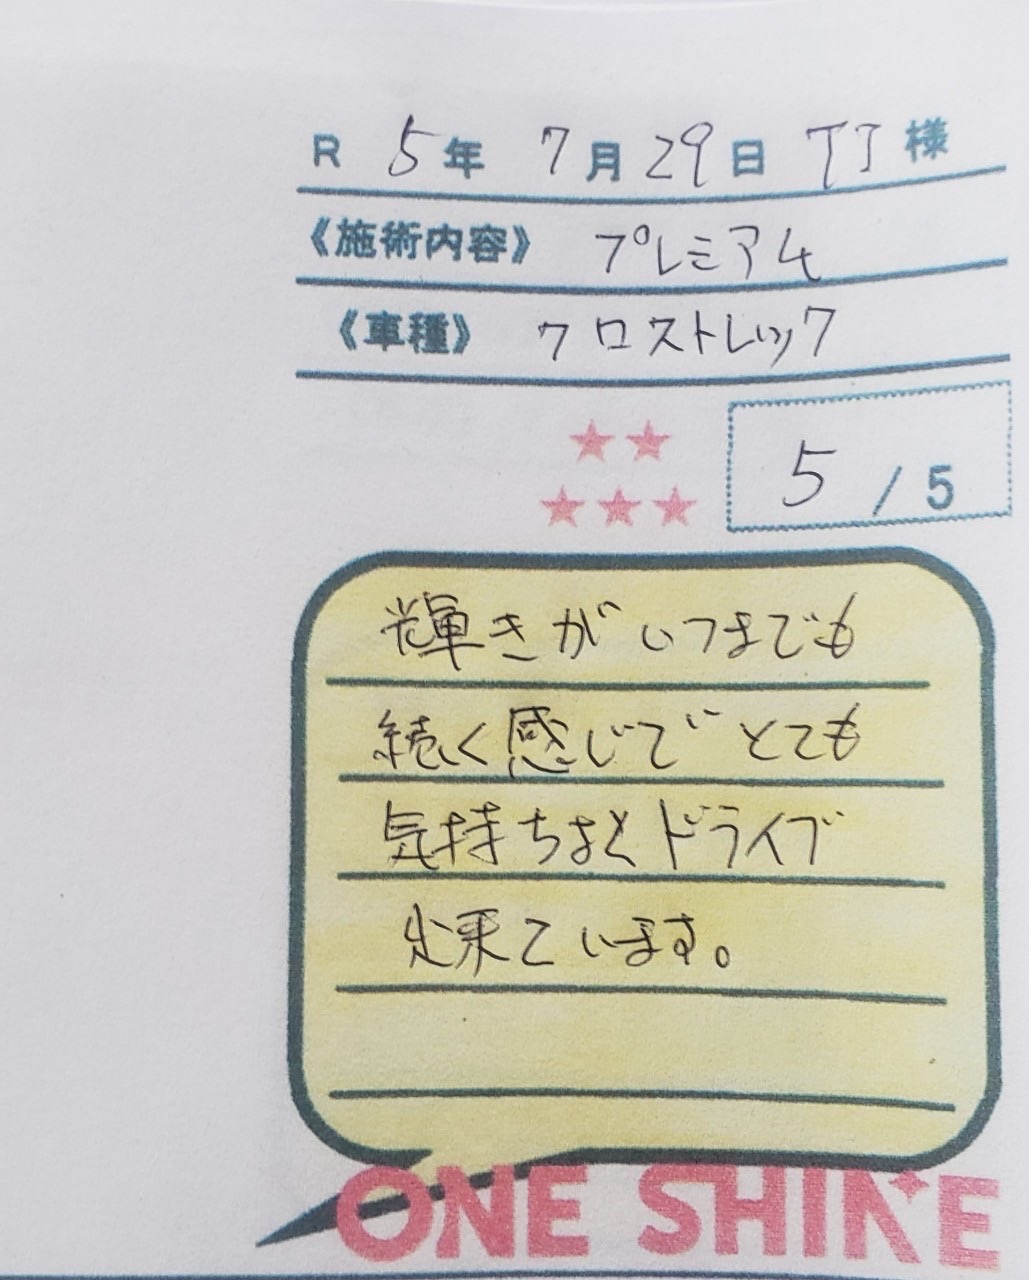 R 5年 7月29日 TJ様
《施術内容》 プレミアム
《車種》 クロストレック
5 / 5
輝きがいつまでも
続く感じでとても
気持ちよくドライブ
出来ています。
ONE SHINE